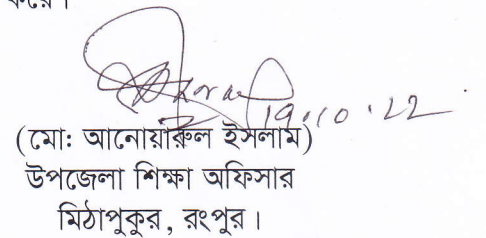 করে।
19.10.22
(মো: আনোয়ারুল ইসলাম)
উপজেলা শিক্ষা অফিসার
মিঠাপুকুর, রংপুর।